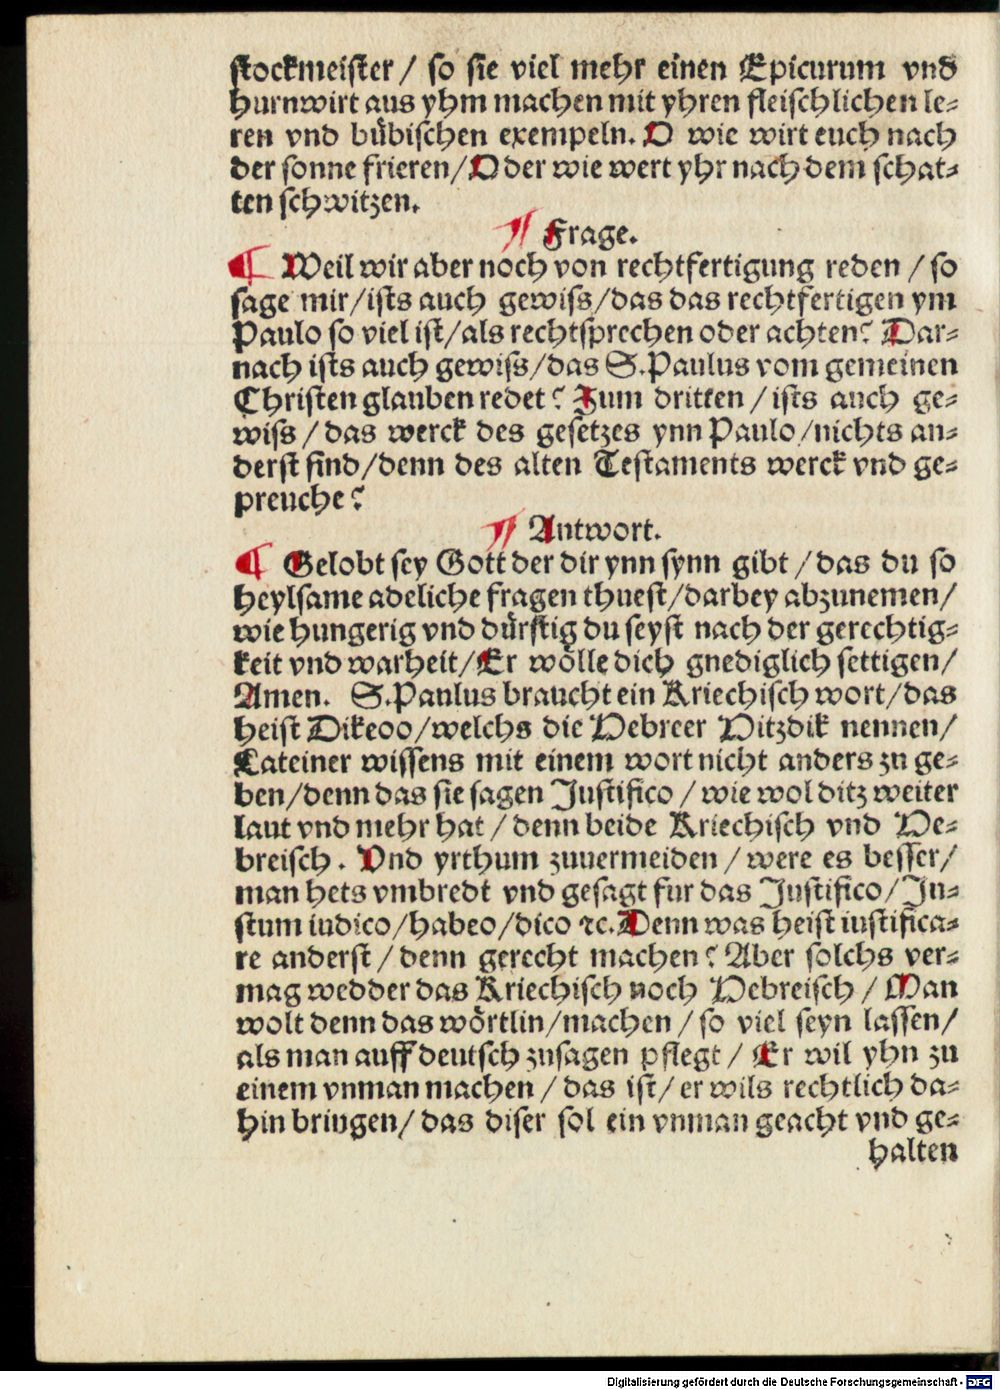 stockmeister / so sie viel mehr einen Epicurum vnd
hurnwirt aus yhm machen mit yhren fleischlichen le⸗
ren vnd bübischen exempeln. O wie wirt euch nach
der sonne frieren/Oder wie wert yhr nach dem schat⸗
ten schwitzen.
¶ Frage.
¶ Weil wir aber noch von rechtfertigung reden / so
sage mir/ists auch gewiss/das das rechtfertigen ym
Paulo so viel ist/als rechtsprechen oder achten? Dar⸗
nach ists auch gewiss/das S.Paulus vom gemeinen
Christen glauben redet? Zum dritten / ists auch ge⸗
wiss / das werck des gesetzes ynn Paulo/nichts an⸗
derst sind/denn des alten Testaments werck vnd ge⸗
preuche?
¶ Antwort.
¶ Gelobt sey Gott der dir ynn synn gibt / das du so
heylsame adeliche fragen thuest/darbey abzunemen/
wie hungerig vnd dürstig du seyst nach der gerechtig⸗
keit vnd warheit/Er wölle dich gnediglich settigen/
Amen. S.Paulus braucht ein Kriechisch wort/das
heist Dikeoo/welchs die Hebreer Hitzdik nennen/
Lateiner wissens mit einem wort nicht anders zu ge⸗
ben/denn das sie sagen Justifico / wie wol ditz weiter
laut vnd mehr hat / denn beide Kriechisch vnd He⸗
breisch. Vnd yrthum zuuermeiden / were es besser/
man hets vmbredt vnd gesagt fur das Justifico/Ju⸗
stum iudico/habeo/dico ꝛc.Denn was heist iustifica⸗
re anderst / denn gerecht machen? Aber solchs ver⸗
mag wedder das Kriechisch noch Hebreisch / Man
wolt denn das wörtlin/machen / so viel seyn lassen/
als man auff deutsch zusagen pflegt / Er wil yhn zu
einem vnman machen / das ist/ er wils rechtlich da⸗
hin bringen/ das diser sol ein vnman geacht vnd ge⸗
halten
Digitalisierung gefördert durch die Deutsche Forschungsgemeinschaft - DFG